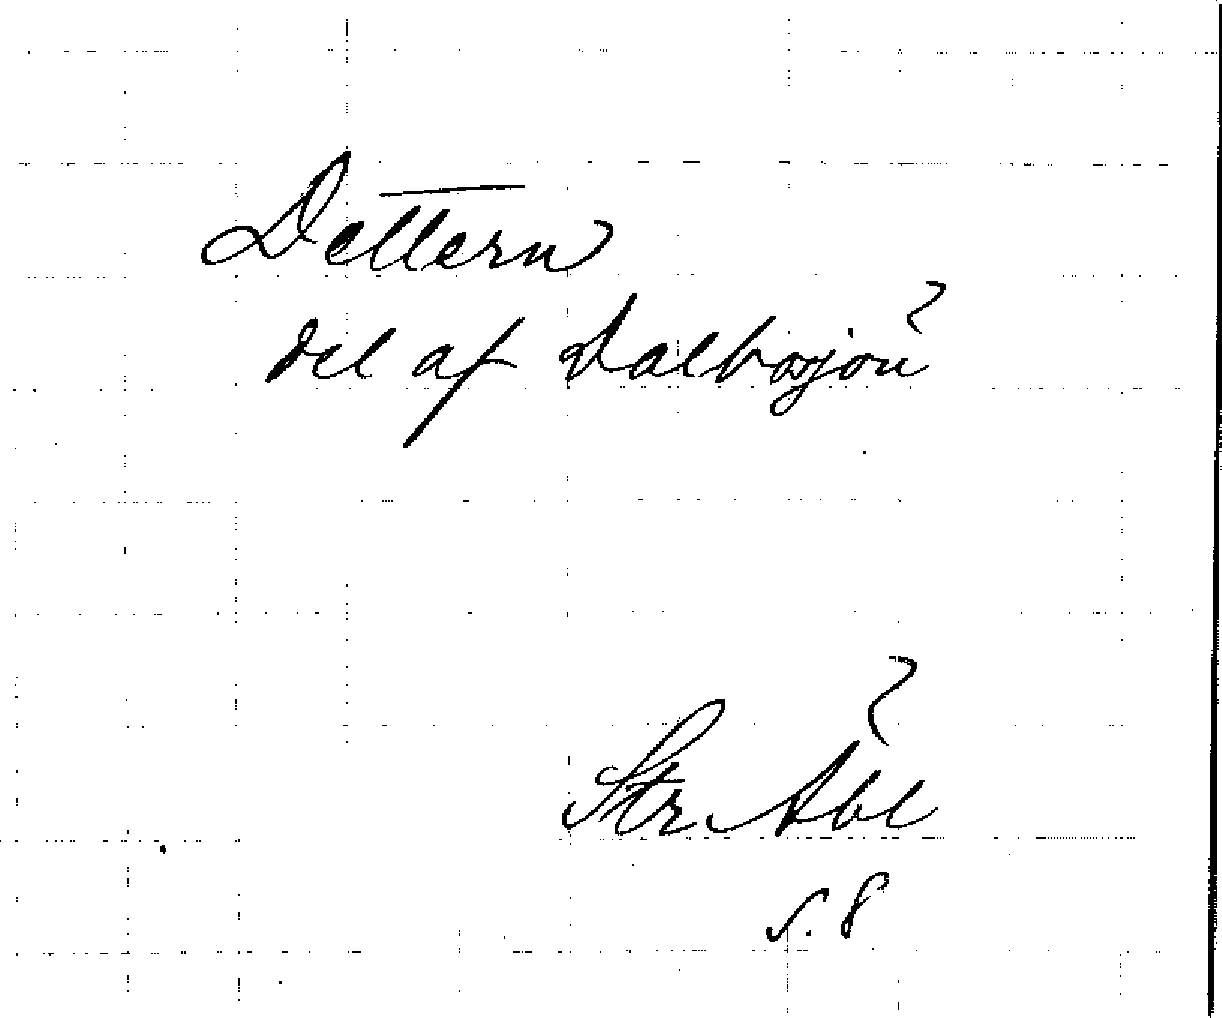 Dettern
del af Dalbosjön
Str Åbl
s. 8